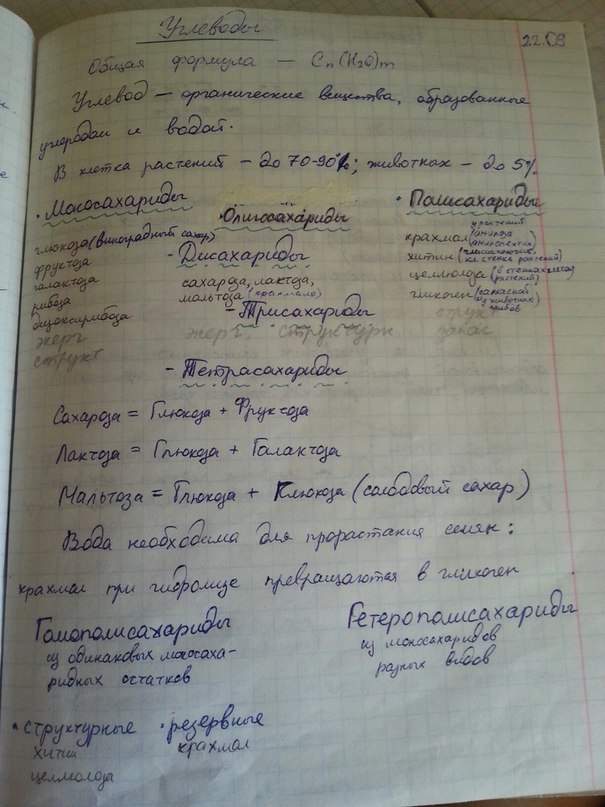 Углеводы
22.09
Общая формула — Cn(H2O)m
Углевод — органические вещества, образованные
углеродом и водой.
В клетка растений – до 70-90%; животных – до 5%
• Моносахариды
глюкоза (виноградный сахар)
фруктоза
галактоза
рибоза
дизоксирибоза
энерг
структ
Олигосахариды
- Дисахариды
сахароза, лактоза,
мальтоза
- Трисахариды
энерг, структурн
- Тетрасахариды
• Полисахариды
крахмал (амилоза
у растений
амилопектин)
хитин
кл стенка растений)
целлюлоза (в стенках
растений)
гликоген (запасной
у животных
грибов
структ
запас
Сахароза = Глюкоза + Фруктоза
Лактоза = Глюкоза + Галактоза
Мальтоза = Глюкоза + Клюкоза (солодовый сахар)
Вода необходима для прорастания семян:
крахмал при гидролизе превращаются в гликоген
Гомополисахариды
из одинаковых моносаха-
ридных остатков
Гетерополисахариды
из моносахаридов
разных видов
• структурные
хитин
целлюлоза
• резервные
крахмал